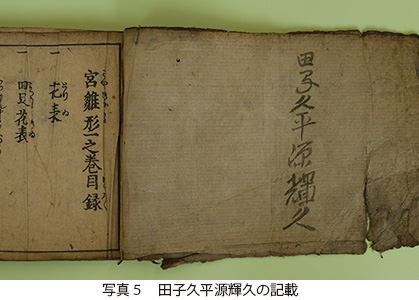 田子久平源輝久
宮雛形一之巻目録
一 花表
一 四足花表
写真5 田子久平源輝久の記載